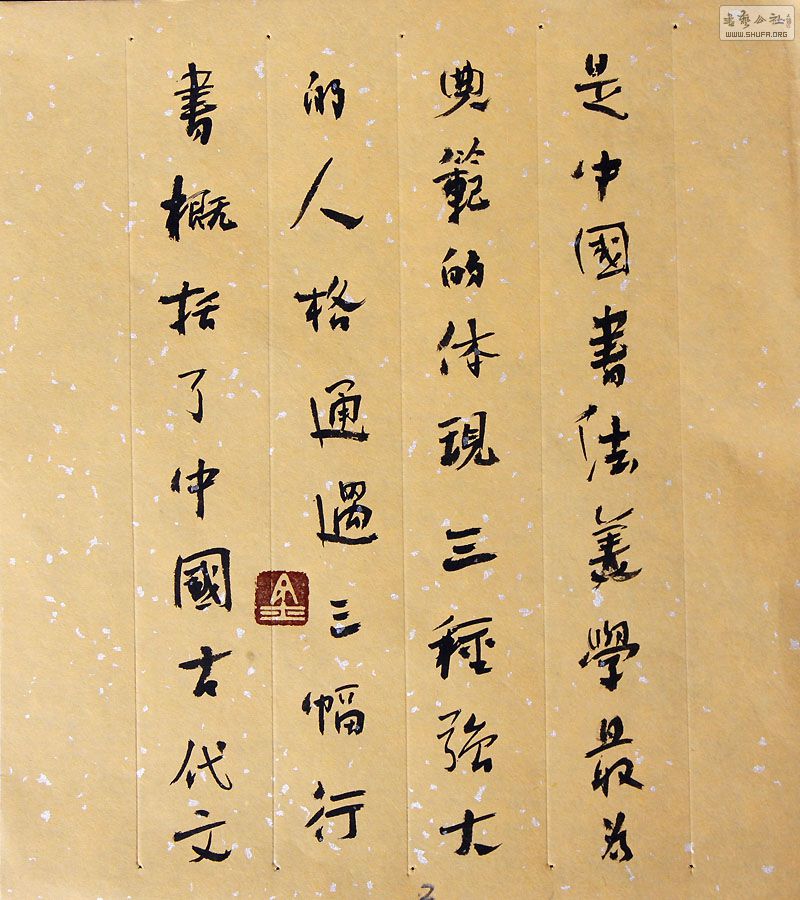 是中國書法美學最為
典範的体現三種強大
的人格通過三幅行
書概括了中國古代文
2
WWW.SHUFA.ORG